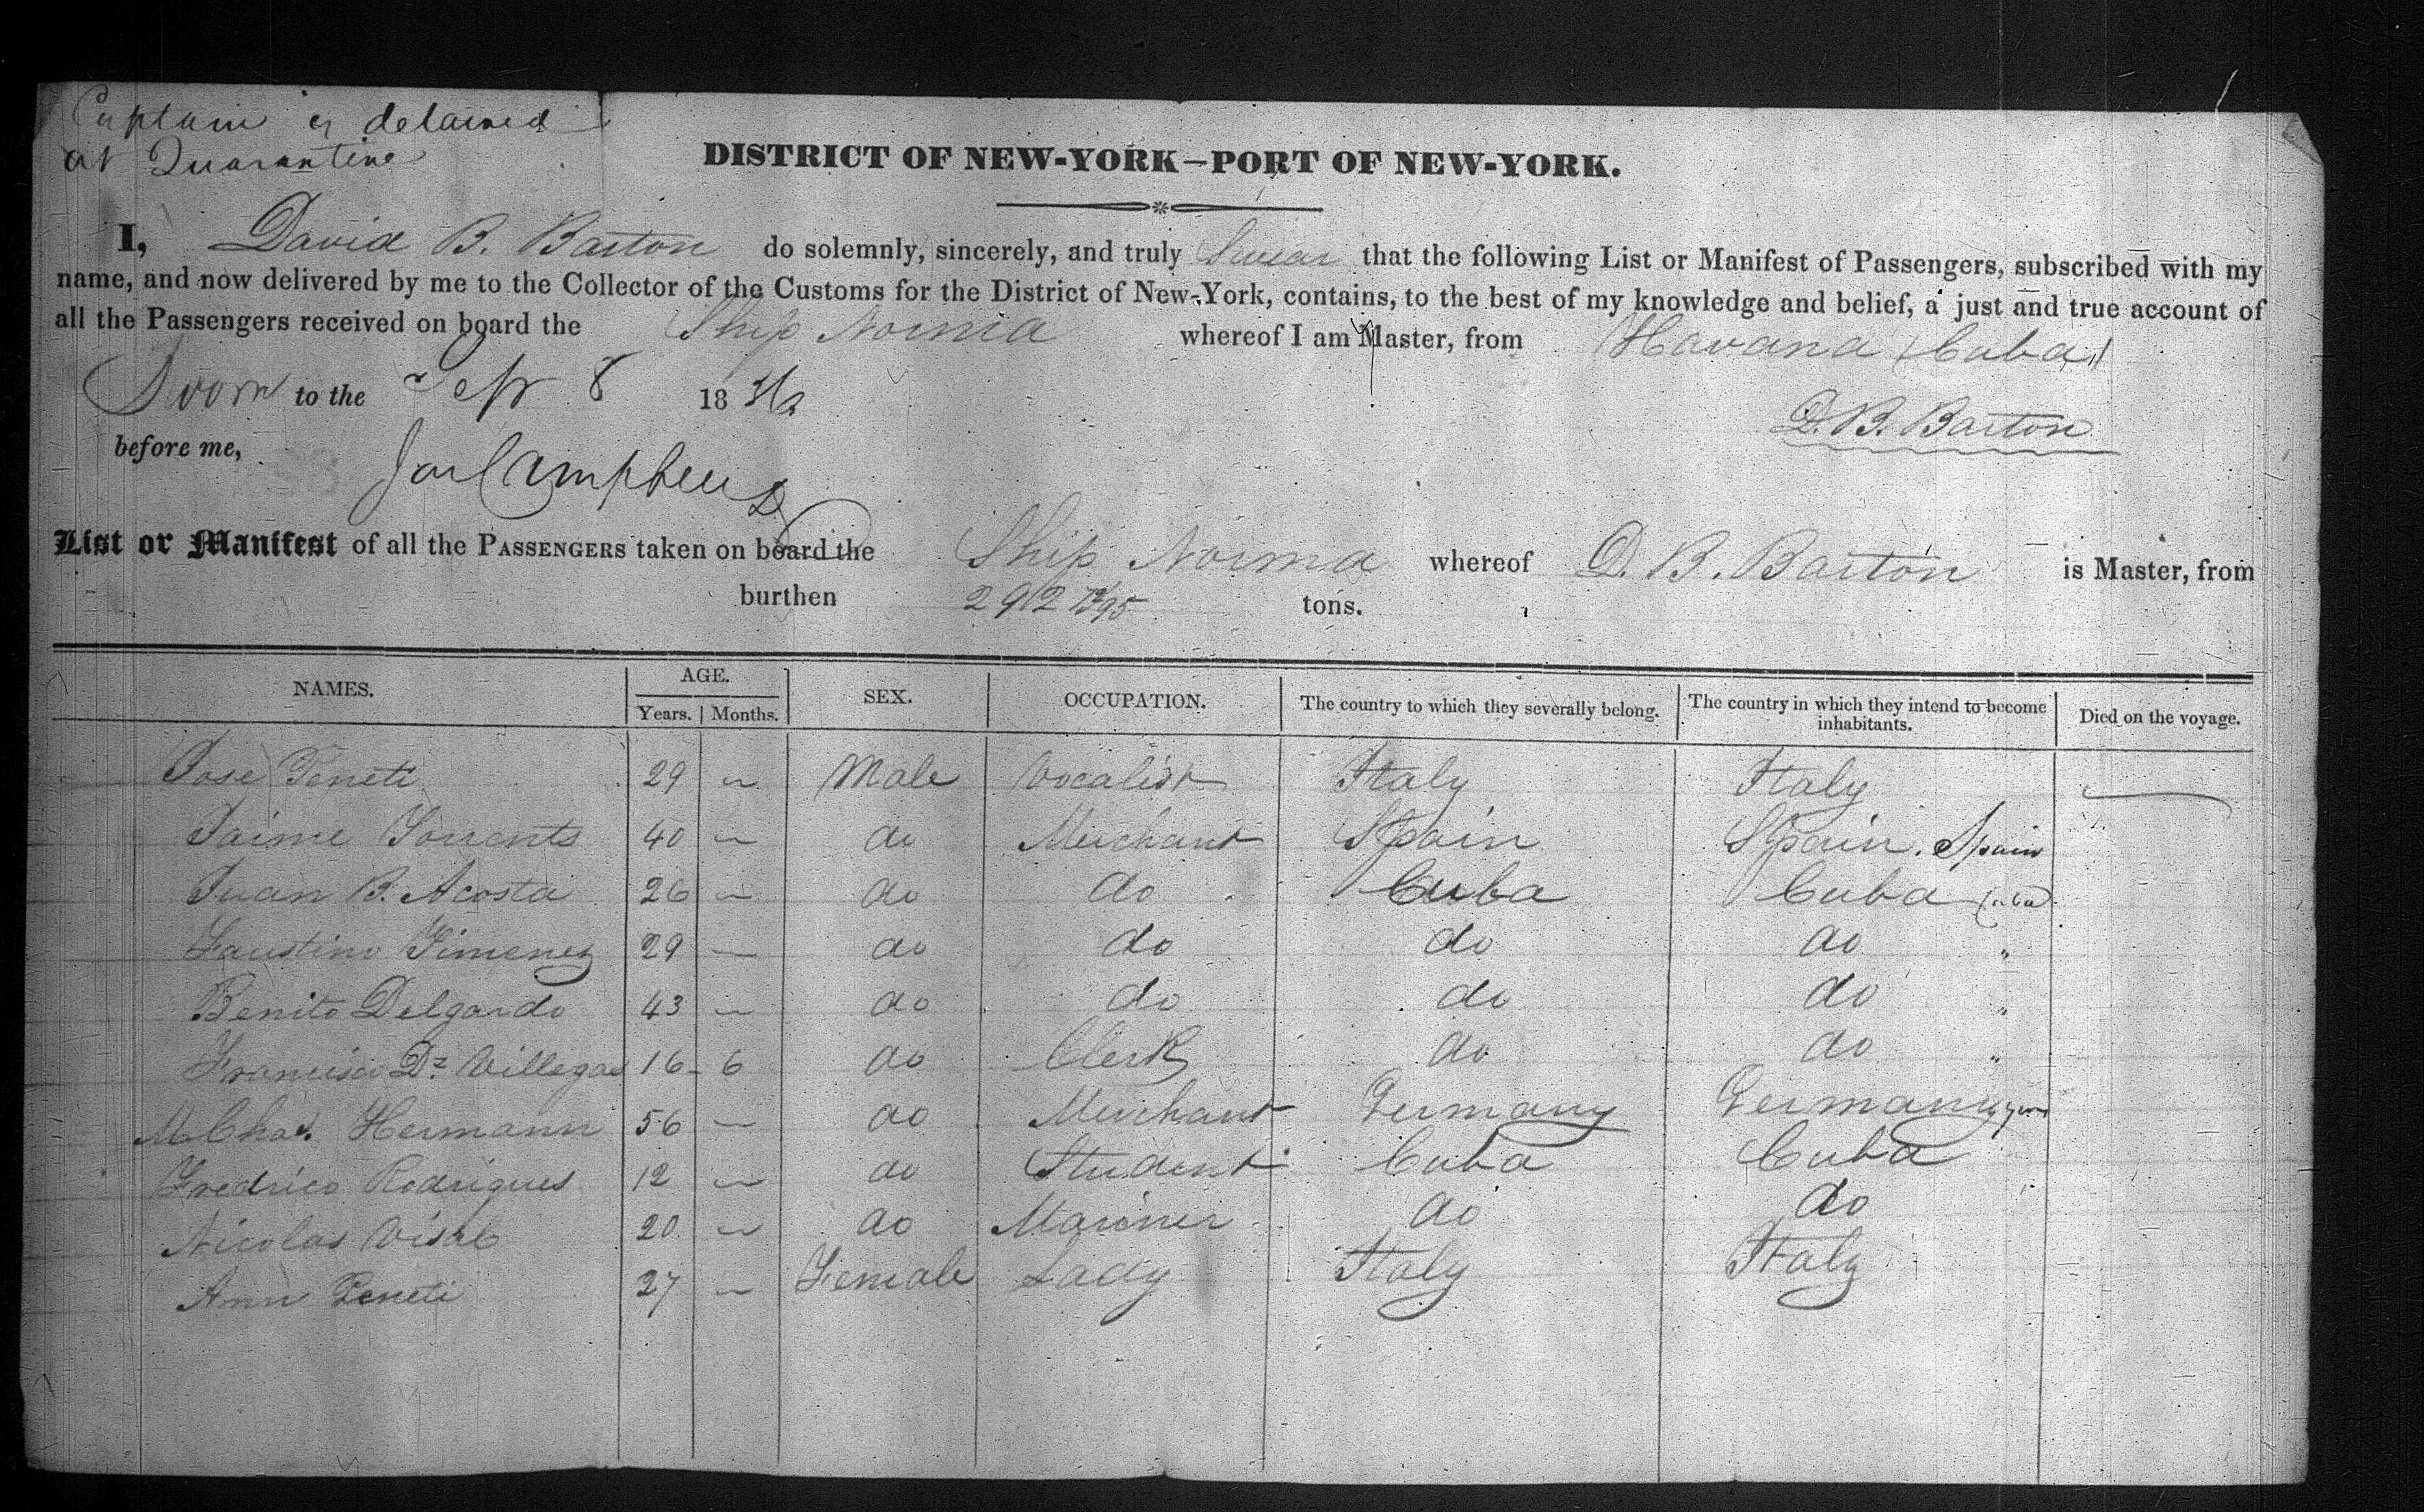 Captain is detained
at Quarantine
DISTRICT OF NEW-YORK—PORT OF NEW-YORK.
I, David B. Barton do solemnly, sincerely, and truly Swear that the following List or Manifest of Passengers, subscribed with my
name, and now delivered by me to the Collector of the Customs for the District of New-York, contains, to the best of my knowledge and belief, a just and true account of
all the Passengers received on board the Ship Norma whereof I am Master, from Havana (Cuba)
Sworn to the Sept 8 1836
D. B. Barton
before me,
List or Manifest of all the PASSENGERS taken on board the Ship Norma whereof D. B. Barton is Master, from
burthen 292 tons.
NAMES. AGE. SEX. OCCUPATION. The country to which they severally belong. The country in which they intend to become inhabitants. Died on the voyage.
Years. Months.
Jose Peneti 29 — Male Vocalist Italy Italy
Jaime Torrents 40 — do Merchant Spain Spain. Spain
Juan B. Acosta 26 — do do Cuba Cuba Cuba
Faustino Jimenez 29 — do do do do "
Benito Delgardo 43 — do do do do "
Francisco Dz Villegas 16 6 do Clerk do do "
Chas. Hermann 56 — do Merchant Germany Germany
Fredrico Rodrigues 12 — do Student Cuba Cuba
Nicolas 20 — do Mariner do do
Ann Peneti 27 — Female Lady Italy Italy